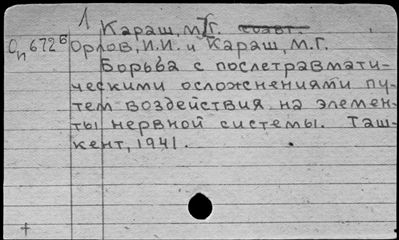 1
Караш, М.Г. соавт.
Оп 672б Орлов, И.И. и Караш, М.Г.
Борьба с послетравмати-
ческими осложнениями пу-
тем воздействия на элемен-
ты нервной системы. Таш-
кент, 1941.